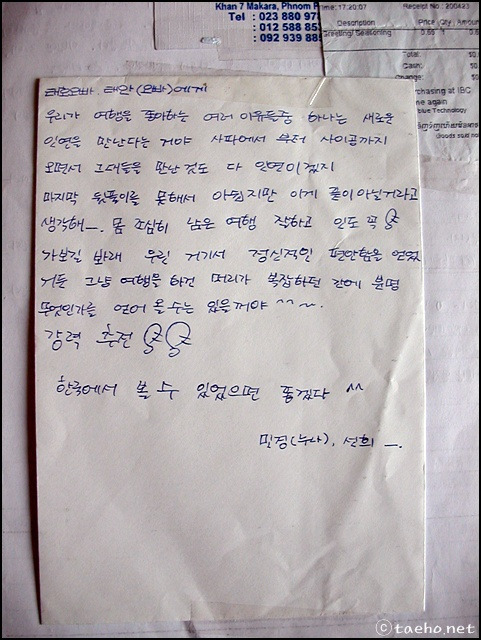 Khan 7 Makara, Phnom P
Tel : 023 880 97
: 012 588 85
: 092 939 88
Time: 17:20:07 Receipt No : 200423
Description Price Qty Amoun
Greeting/ Seasoning 0.50 1
Total: $0.
Cash: $0.
Change:
rchasing at IBC
me again
blue Technology
Goods sold no
태호오빠, 태완(오빠)에게
우리가 여행을 좋아하는 여러 이유들중 하나는 새로운
인연을 만난다는 거야 사파에서 부터 사이공까지
오면서 그대들을 만난 것도 다 인연이겠지
마지막 뒷풀이를 못해서 아쉽지만 이게 끝이 아닐거라고
생각해-. 몸 조심히 남은 여행 잘하고 인도 꼭
가보길 바래 우린 거기서 정신적인 편안함을 얻었
거든 그냥 여행을 하건 머리가 복잡하던 간에 분명
무엇인가를 얻어 올 수는 있을꺼야 ^^~.
강력 추천
한국에서 볼 수 있었으면 좋겠다 ^^
민경(누나), 선희 -.
ⓒtaeho.net